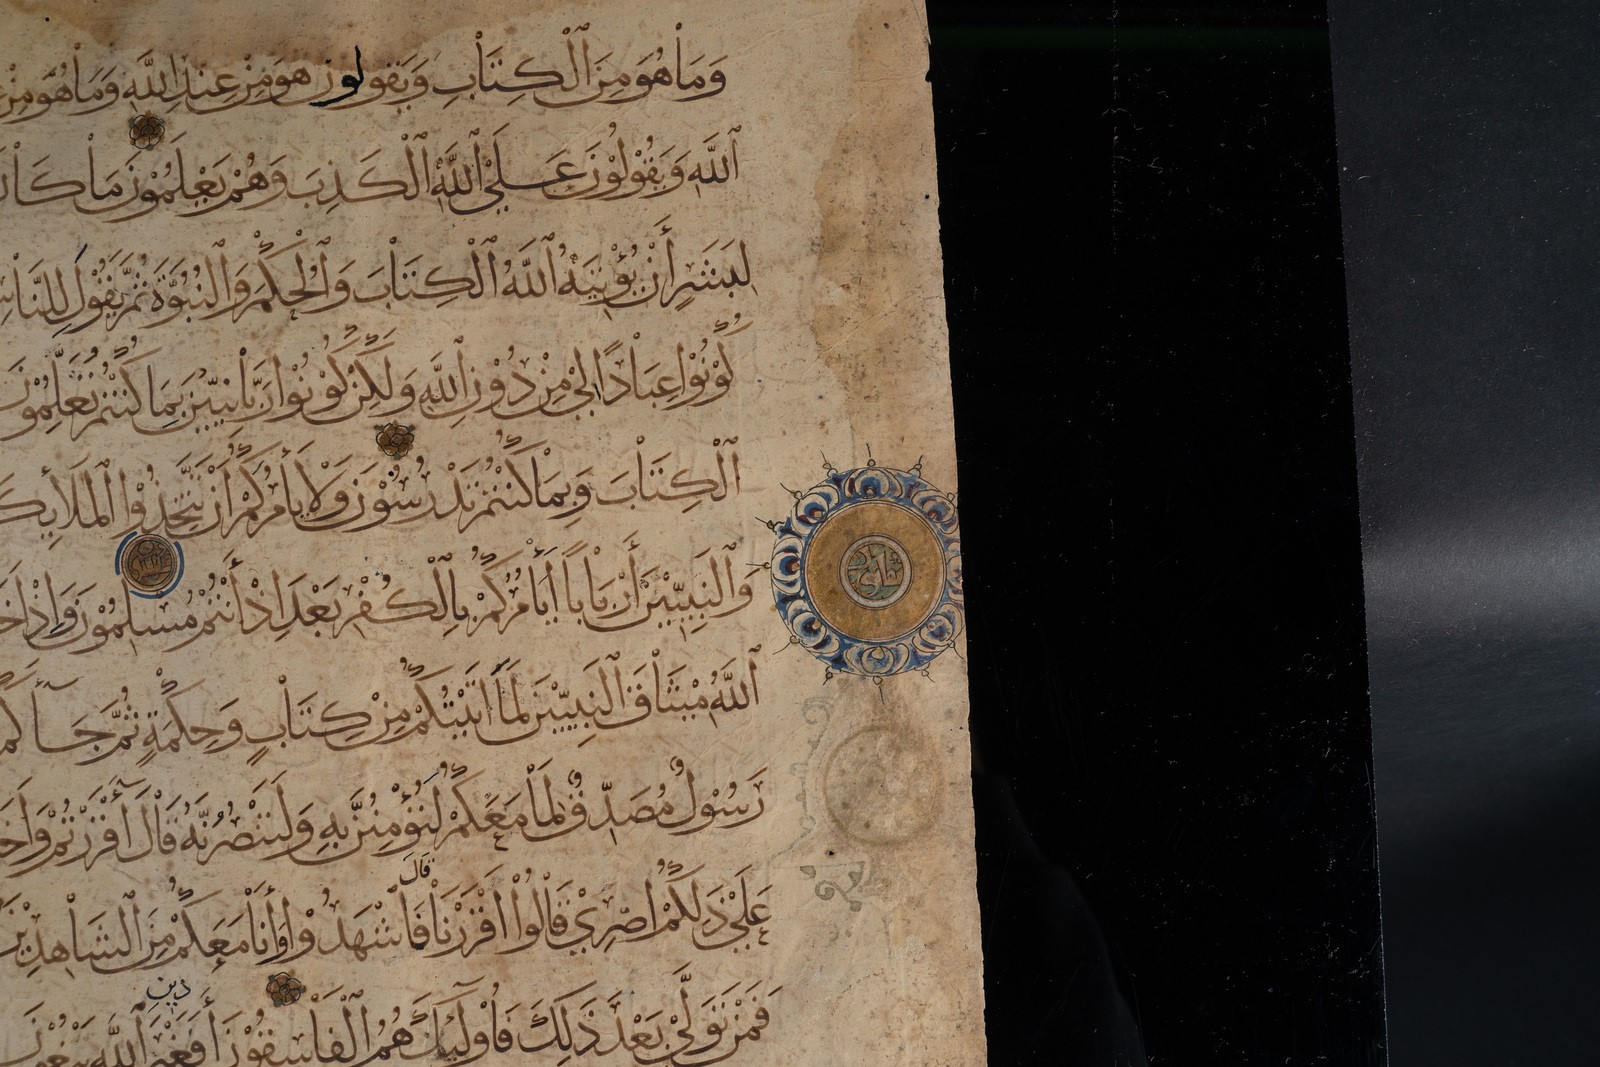 وَمَا هُوَ مِنَ ٱلْكِتَابِ وَيَقُولُونَ هُوَ مِنْ عِندِ ٱللَّهِ وَمَا هُوَ مِنْ
ٱللَّهِ وَيَقُولُونَ عَلَى ٱللَّهِ ٱلْكَذِبَ وَهُمْ يَعْلَمُونَ مَا كَانَ
لِبَشَرٍ أَنْ يُؤْتِيَهُ ٱللَّهُ ٱلْكِتَابَ وَٱلْحُكْمَ وَٱلنُّبُوَّةَ ثُمَّ يَقُولَ لِلنَّاسِ
كُونُوا عِبَادًا لِي مِنْ دُونِ ٱللَّهِ وَلَكِنْ كُونُوا رَبَّانِيِّينَ بِمَا كُنْتُمْ تُعَلِّمُونَ
ٱلْكِتَابَ وَبِمَا كُنْتُمْ تَدْرُسُونَ وَلَا يَأْمُرَكُمْ أَنْ تَتَّخِذُوا ٱلْمَلَائِكَ
وَٱلنَّبِيِّينَ أَرْبَابًا أَيَأْمُرُكُمْ بِٱلْكُفْرِ بَعْدَ إِذْ أَنْتُمْ مُسْلِمُونَ وَإِذْ أَخَ
ٱللَّهُ مِيثَاقَ ٱلنَّبِيِّينَ لَمَا آتَيْتُكُمْ مِنْ كِتَابٍ وَحِكْمَةٍ ثُمَّ جَآءَكُمْ
رَسُولٌ مُصَدِّقٌ لِمَا مَعَكُمْ لَتُؤْمِنُنَّ بِهِ وَلَتَنْصُرُنَّهُ قَالَ أَأَقْرَرْتُمْ وَأَخَذ
قَالَ
عَلَى ذَلِكُمْ إِصْرِي قَالُوا أَقْرَرْنَا فَٱشْهَدُوا وَأَنَا مَعَكُمْ مِنَ ٱلشَّاهِدِينَ
دِينِ
فَمَنْ تَوَلَّى بَعْدَ ذَلِكَ فَأُولَئِكَ هُمُ ٱلْفَاسِقُونَ أَفَغَيْرَ ٱللَّهِ يَبْغُونَ